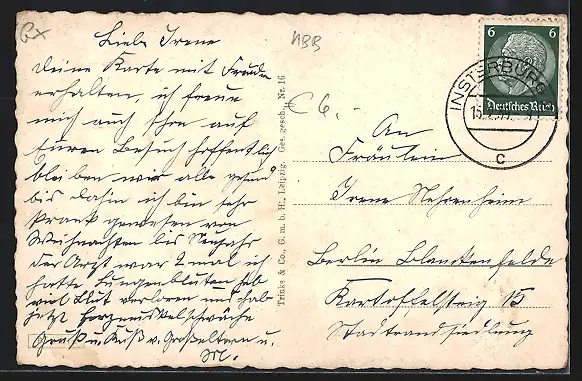 Liebe Irene
deine Karte mit Freude
erhalten, ich freue
mich auch schon auf
Euren Besuch hoffentlich
bleiben wir alle gesund
bis dahin ich bin sehr
krank gewesen von
Weihnachten bis Neujahr
der Arzt war 2 mal ich
hatte Lungenbluten hab
viel Blut verloren und hab
jetzt Herzmuskelschwäche
Gruß u. Kuß v. Großeltern u.
M.
Trinks & Co., G. m. b. H., Leipzig. Ges. gesch. Nr. 16
NBB
€ 6,-
6 6
Deutsches Reich
INSTERBURG
C
An
Fräulein
Irene Nehrenheim
Berlin Blankenfelde
Kartoffelsteig 15
Stadtrandsiedlung